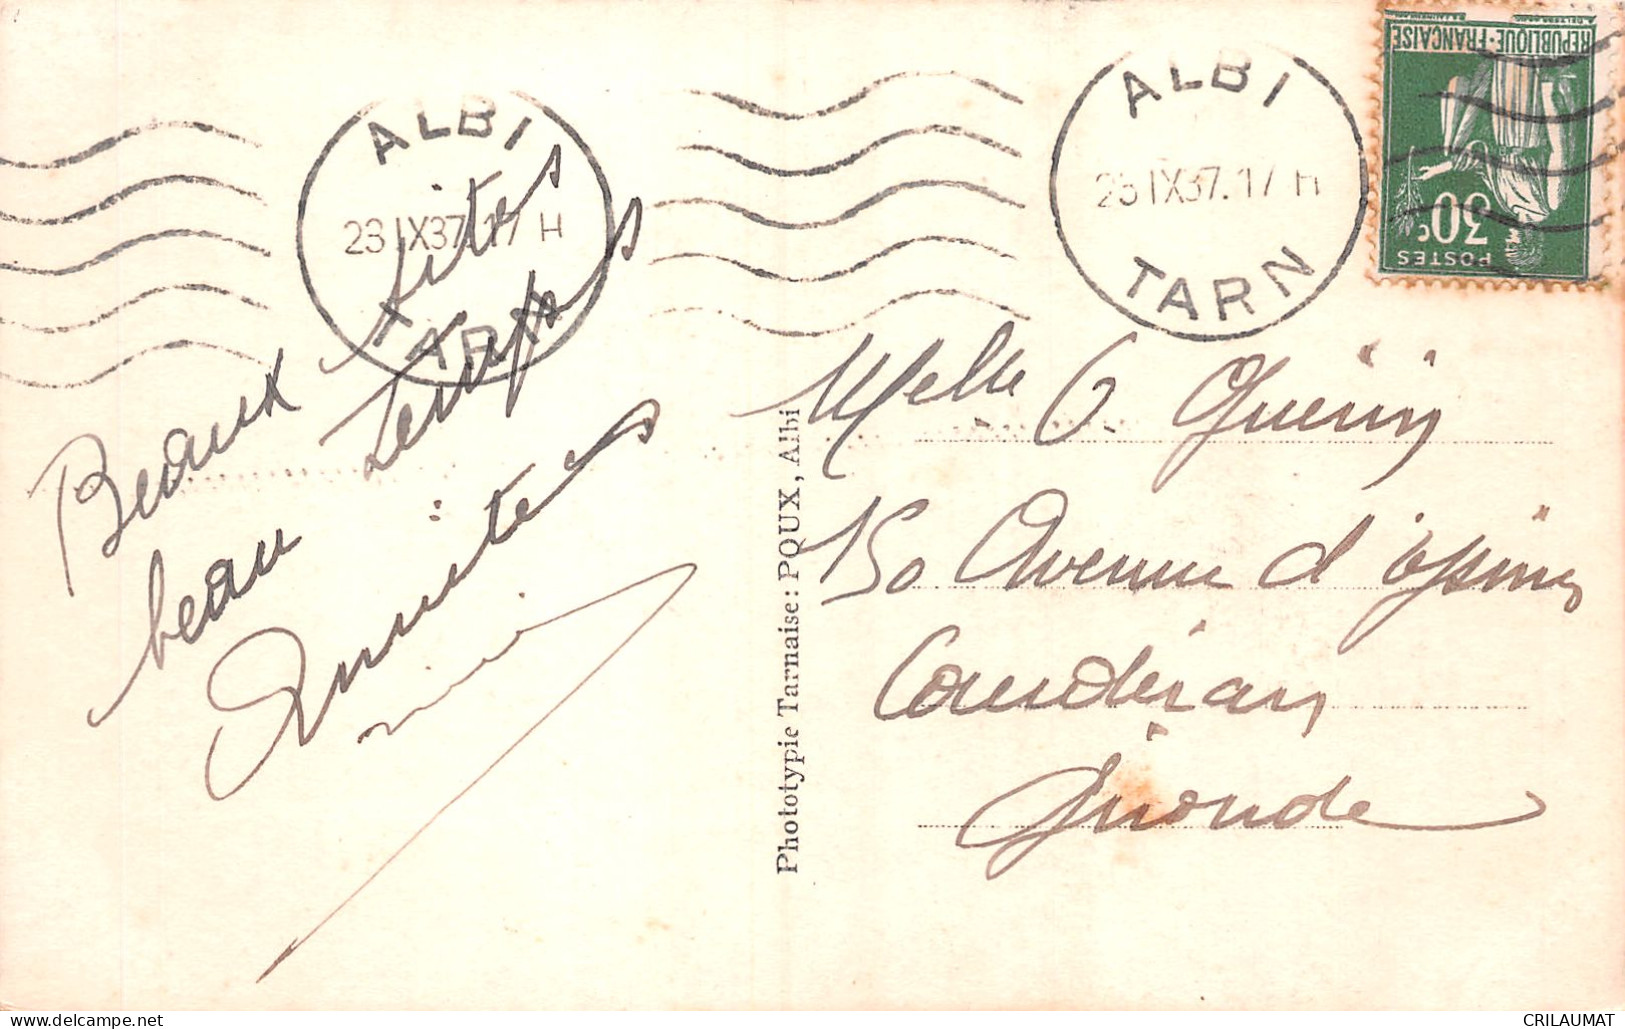 ALBI
23 IX37.17 H
TARN
ALBI
23 IX37.17 H
TARN
REPUBLIQUE-FRANÇAISE
30c
POSTES
Beaux sites
beau temps
Amitiés
Phototypie Tarnaise: POUX, Albi
Melle G. Guerin
150 Avenue d'
Caudéran
Gironde
delcampe.net
CRILAUMAT